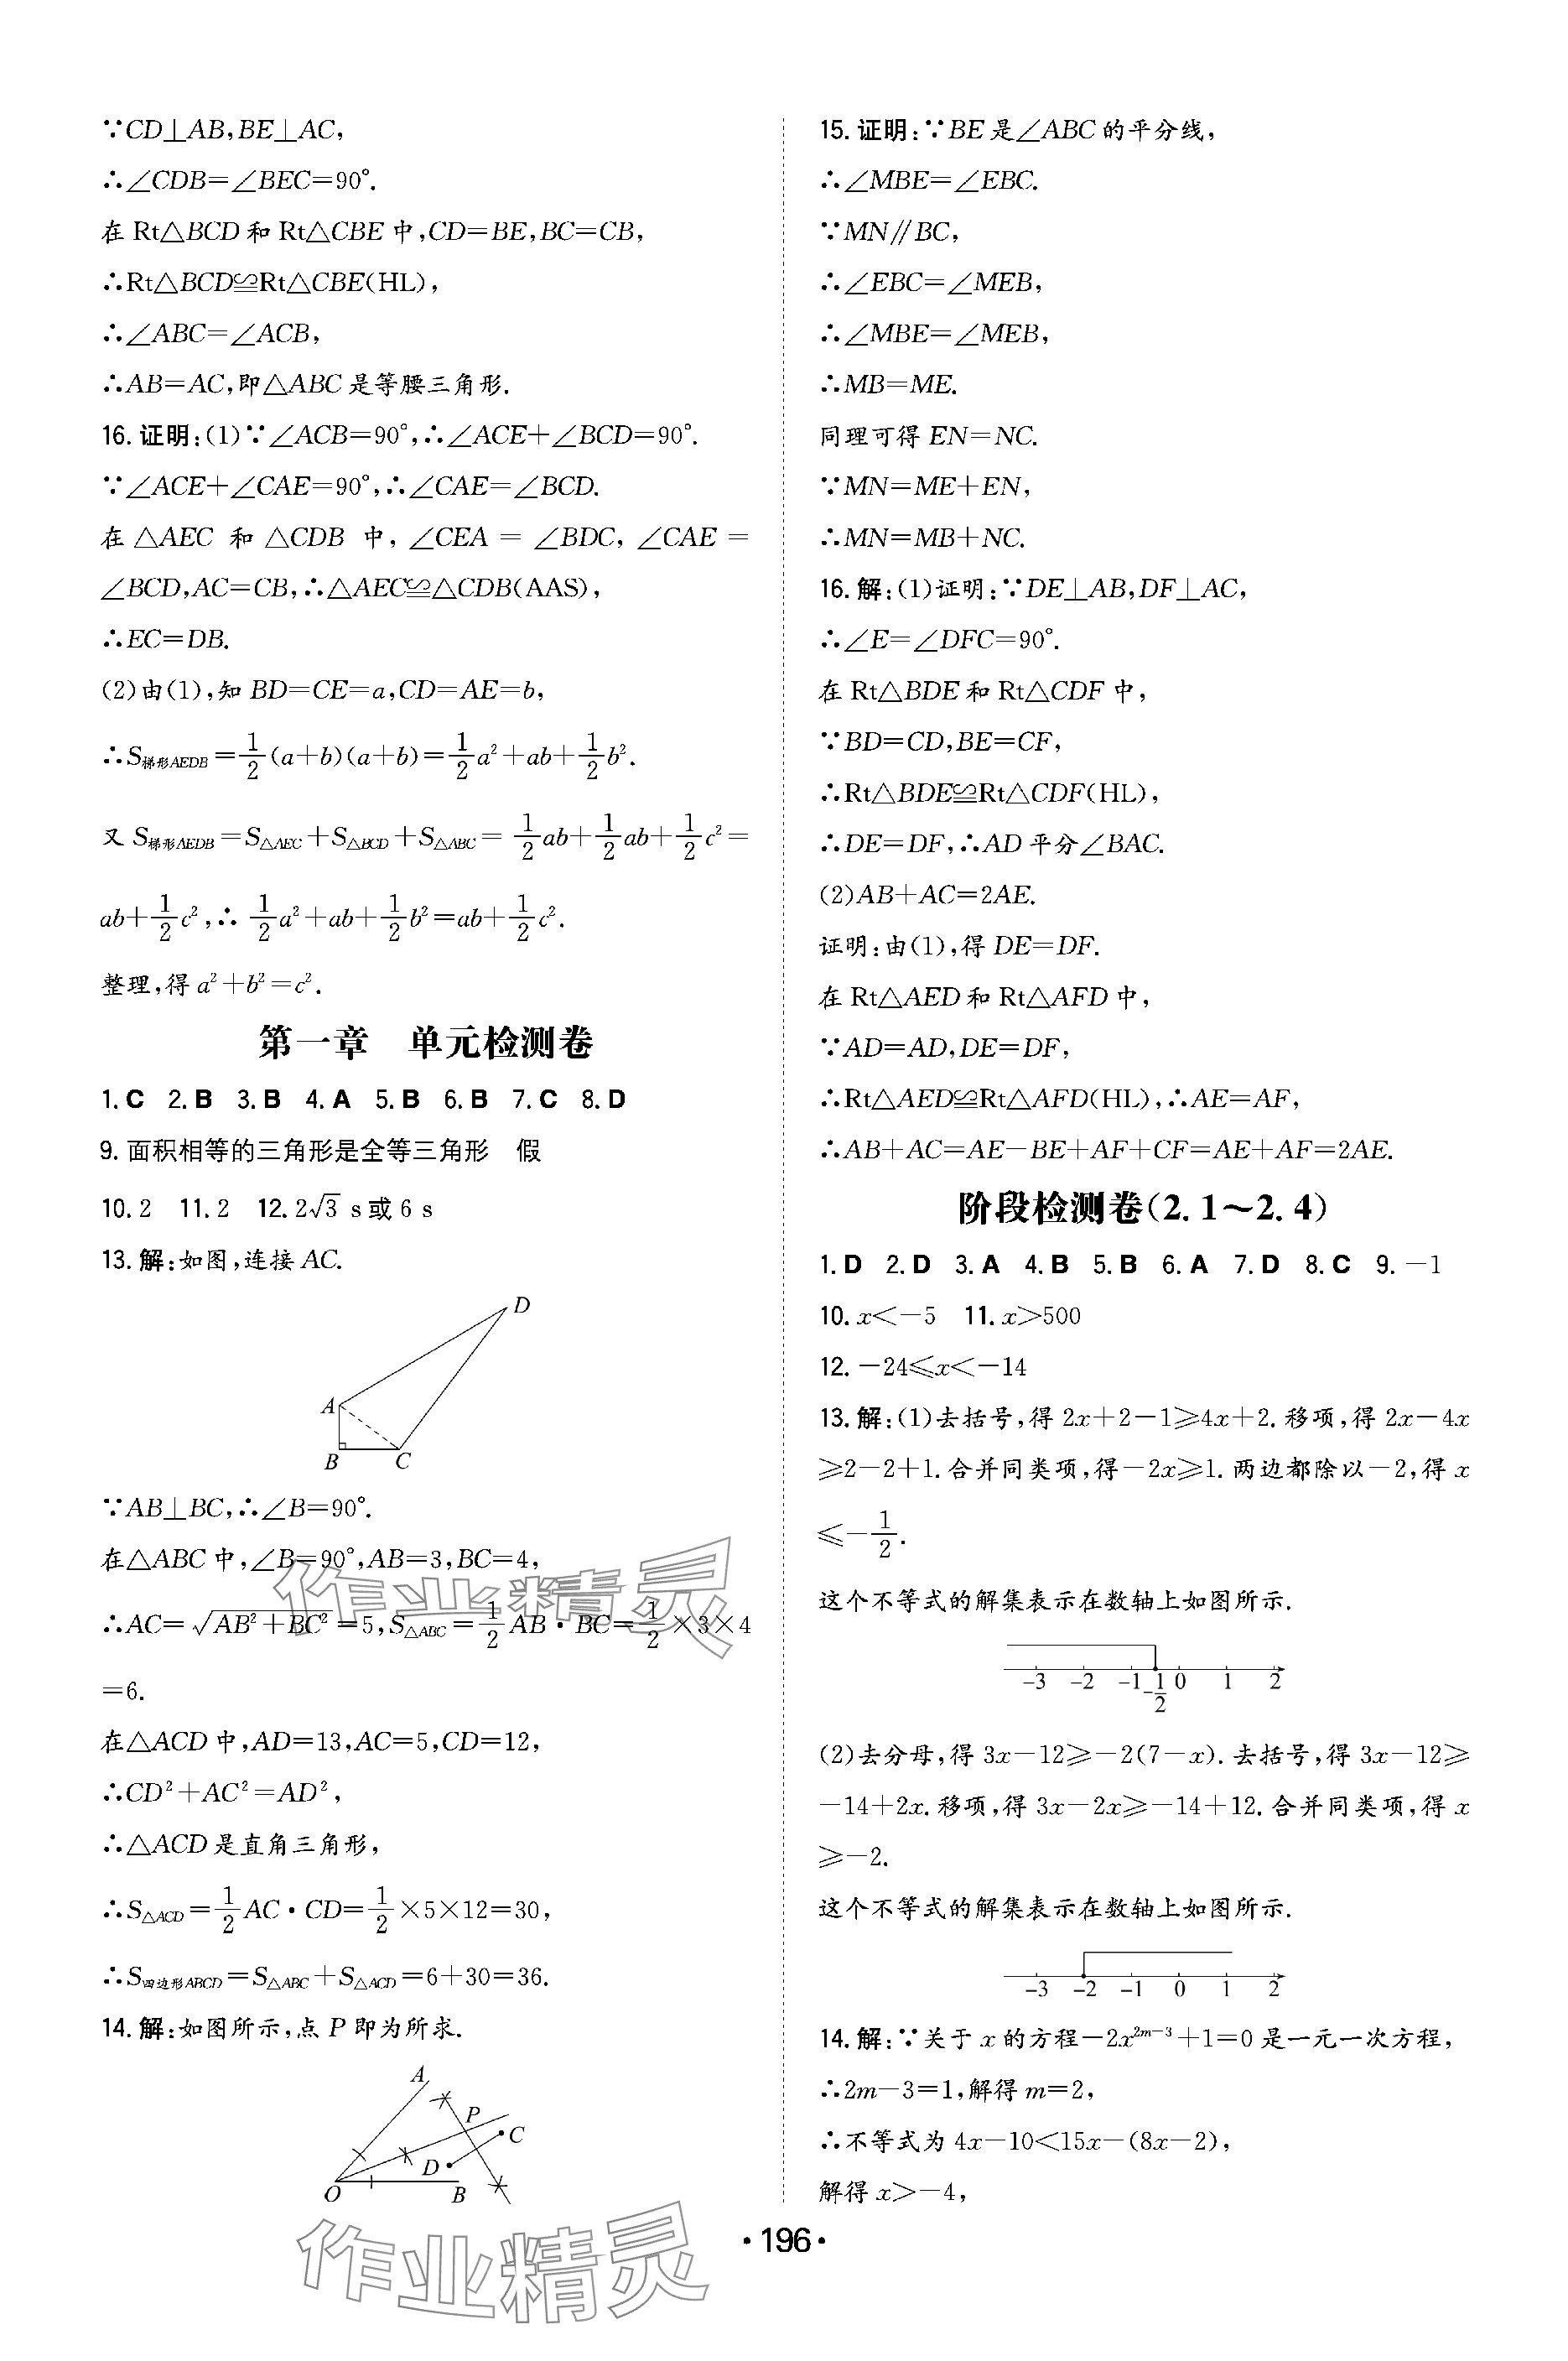 ∵CD⊥AB,BE⊥AC,
∴∠CDB=∠BEC=90°.
在 Rt△BCD 和 Rt△CBE 中,CD=BE,BC=CB,
∴Rt△BCD≌Rt△CBE(HL),
∴∠ABC=∠ACB,
∴AB=AC,即△ABC 是等腰三角形.
16.证明:(1)∵∠ACB=90°,∴∠ACE+∠BCD=90°.
∵∠ACE+∠CAE=90°,∴∠CAE=∠BCD.
在 △AEC 和 △CDB 中, ∠CEA = ∠BDC, ∠CAE =
∠BCD,AC=CB,∴△AEC≌△CDB(AAS),
∴EC=DB.
(2)由(1),知 BD=CE=a,CD=AE=b,
∴S梯形AEDB=1/2(a+b)(a+b)=1/2a²+ab+1/2b².
又 S梯形AEDB=S△AEC+S△BCD+S△ABC=1/2ab+1/2ab+1/2c²=
ab+1/2c²,∴1/2a²+ab+1/2b²=ab+1/2c².
整理,得 a²+b²=c².
第一章 单元检测卷
1.C 2.B 3.B 4.A 5.B 6.B 7.C 8.D
9.面积相等的三角形是全等三角形 假
10.2 11.2 12.2√3 s或6 s
13.解:如图,连接 AC.
D
A
B C
∵AB⊥BC,∴∠B=90°.
在△ABC 中,∠B=90°,AB=3,BC=4,
∴AC=√(AB²+BC²)=5,S△ABC=1/2AB·BC=1/2×3×4
=6.
在△ACD 中,AD=13,AC=5,CD=12,
∴CD²+AC²=AD²,
∴△ACD 是直角三角形,
∴S△ACD=1/2AC·CD=1/2×5×12=30,
∴S四边形ABCD=S△ABC+S△ACD=6+30=36.
14.解:如图所示,点 P 即为所求.
A
P
C
D
O B
15.证明:∵BE 是∠ABC 的平分线,
∴∠MBE=∠EBC.
∵MN∥BC,
∴∠EBC=∠MEB,
∴∠MBE=∠MEB,
∴MB=ME.
同理可得 EN=NC.
∵MN=ME+EN,
∴MN=MB+NC.
16.解:(1)证明:∵DE⊥AB,DF⊥AC,
∴∠E=∠DFC=90°.
在 Rt△BDE 和 Rt△CDF 中,
∵BD=CD,BE=CF,
∴Rt△BDE≌Rt△CDF(HL),
∴DE=DF,∴AD 平分∠BAC.
(2)AB+AC=2AE.
证明:由(1),得 DE=DF.
在 Rt△AED 和 Rt△AFD 中,
∵AD=AD,DE=DF,
∴Rt△AED≌Rt△AFD(HL),∴AE=AF,
∴AB+AC=AE-BE+AF+CF=AE+AF=2AE.
阶段检测卷(2.1～2.4)
1.D 2.D 3.A 4.B 5.B 6.A 7.D 8.C 9.-1
10.x<-5 11.x>500
12.-24≤x<-14
13.解:(1)去括号,得 2x+2-1≥4x+2.移项,得 2x-4x
≥2-2+1.合并同类项,得-2x≥1.两边都除以-2,得 x
≤-1/2.
这个不等式的解集表示在数轴上如图所示.
-3 -2 -1 -1/2 0 1 2
(2)去分母,得 3x-12≥-2(7-x).去括号,得 3x-12≥
-14+2x.移项,得 3x-2x≥-14+12.合并同类项,得 x
≥-2.
这个不等式的解集表示在数轴上如图所示.
-3 -2 -1 0 1 2
14.解:∵关于 x 的方程-2x²ᵐ⁻³+1=0 是一元一次方程,
∴2m-3=1,解得 m=2,
∴不等式为 4x-10<15x-(8x-2),
解得 x>-4,
·196·
作业精灵
作业精灵